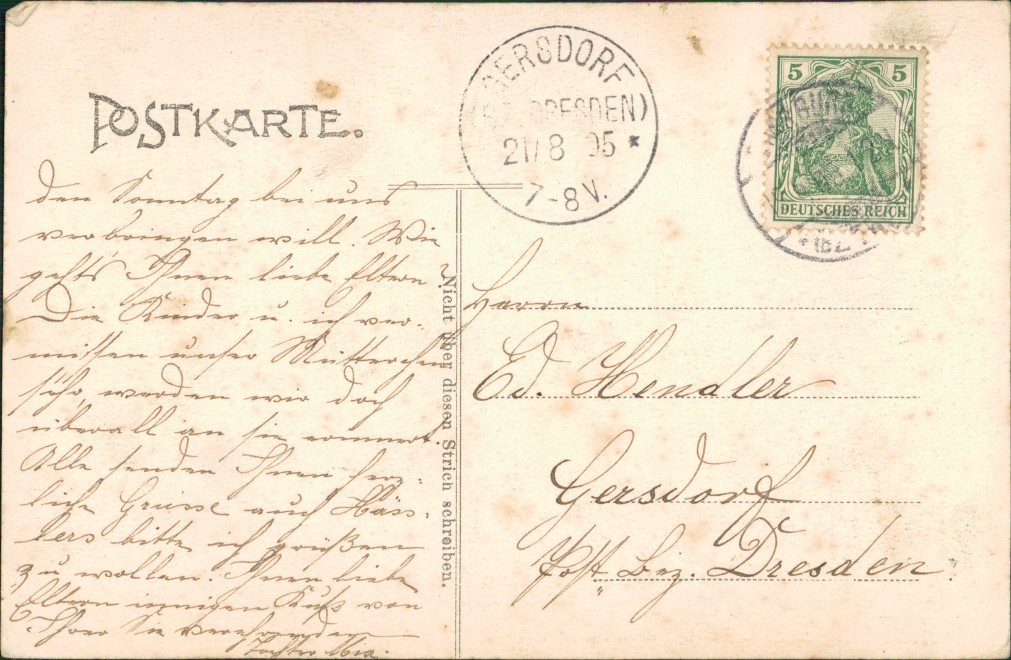 POSTKARTE.
GERSDORF
(BZ. DRESDEN)
21/8 05 *
7-8 V.
5 5
DEUTSCHES REICH
den Sonntag bei uns
verbringen will. Wie
gehts Ihnen liebe Eltern?
Die Kinder u. ich ver-
missen unser Mütterchen
sehr, werden wir doch
überall an sie erinnert.
Alle senden Ihnen herz-
liche Grüsse auch Häss-
lers bitte ich grüßen
zu wollen. Ihnen liebe
Eltern innigen Kuß von
Ihrer Sie verehrenden
Tochter
Nicht über diesen Strich schreiben.
Herrn
Ed. Hendler
Gersdorf
Post Bez. Dresden